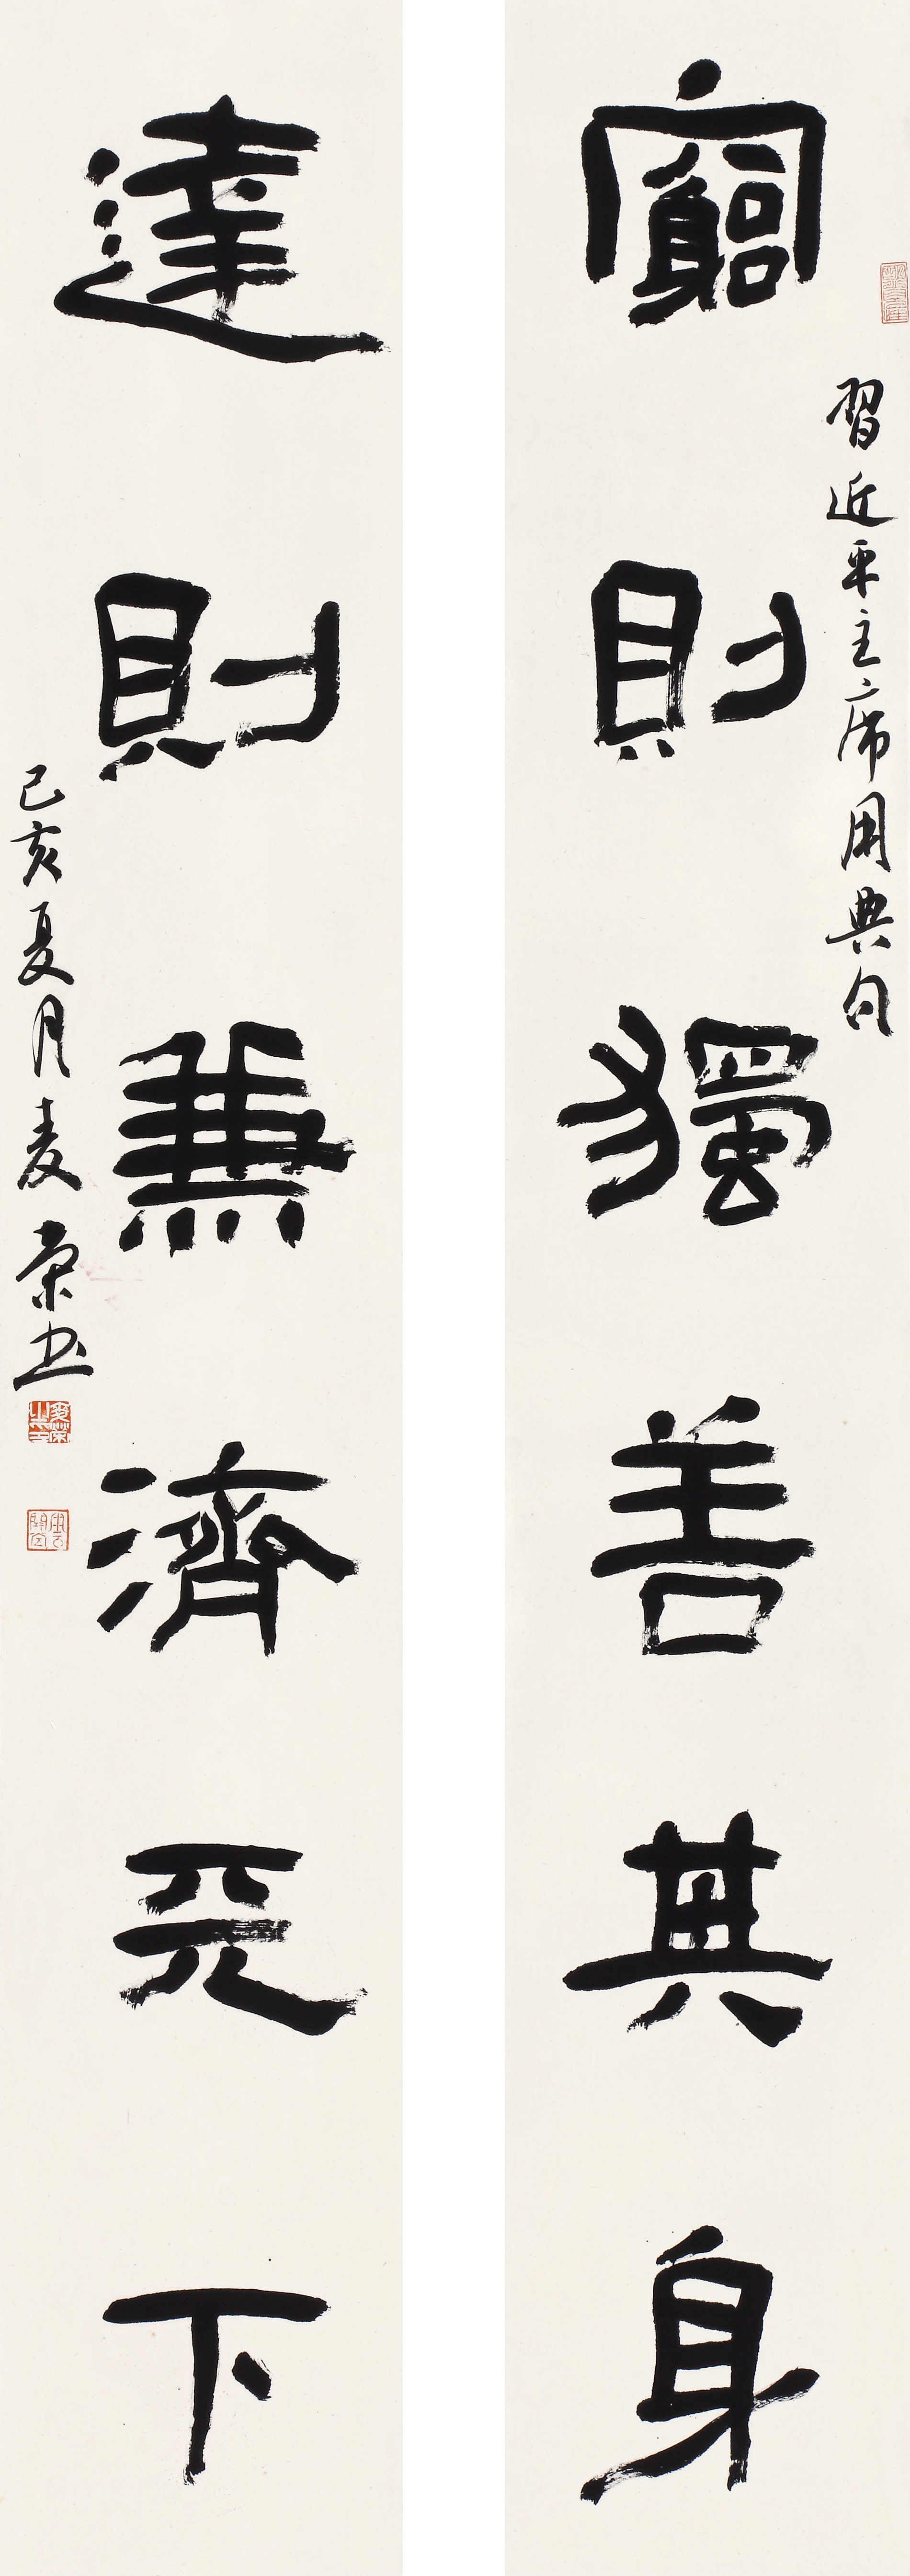 習近平主席用典句
窮則獨善其身
達則兼濟天下
己亥夏月麦荣书